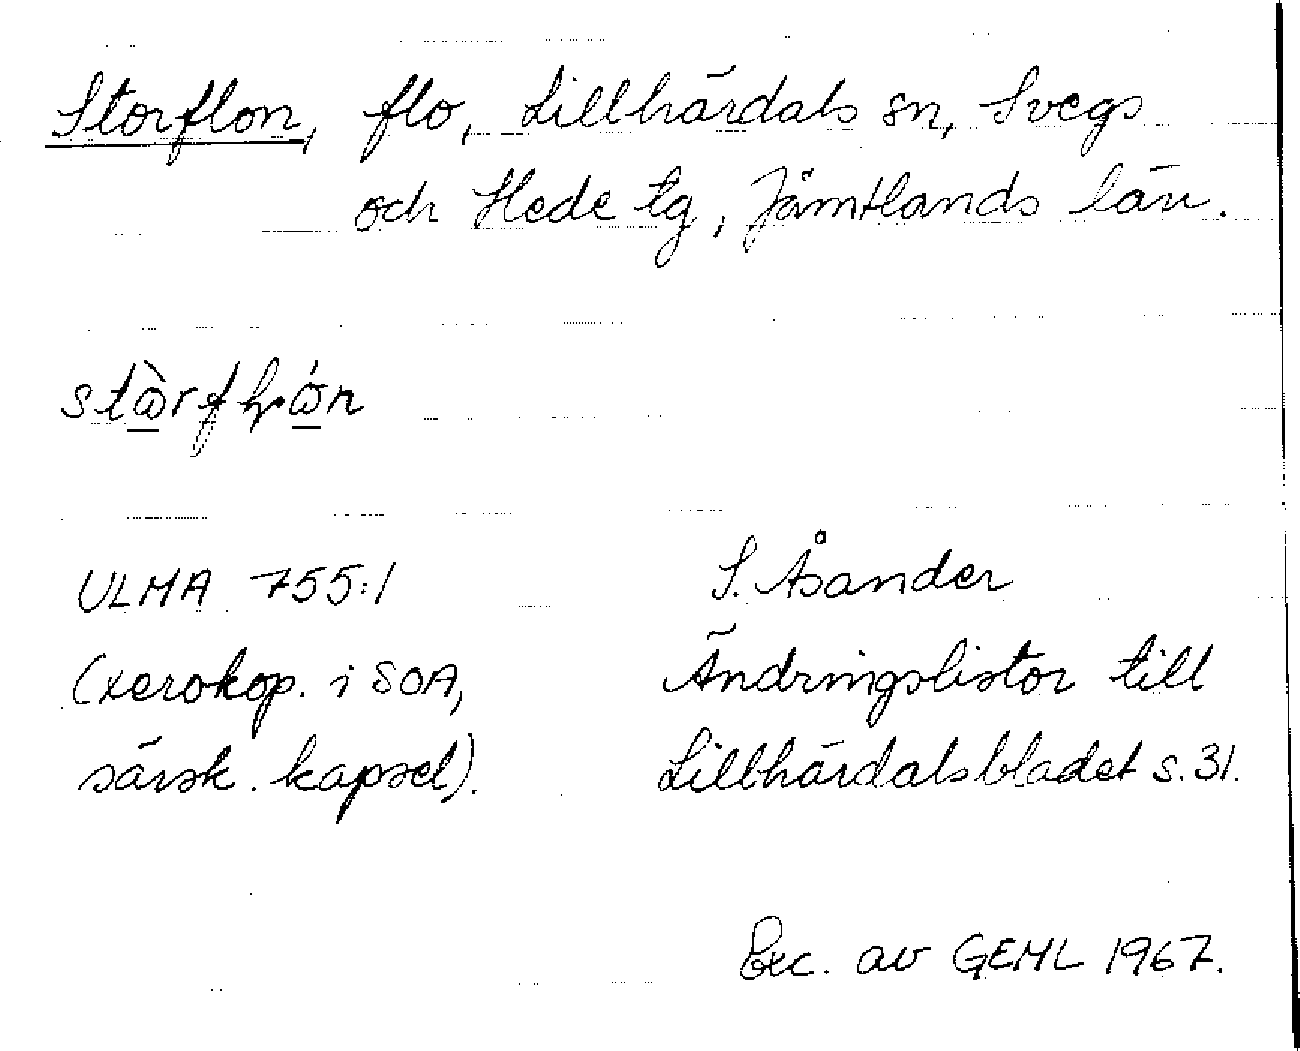 Storflon, flo, Lillhärdals sn, Svegs
och Hede tg, Jämtlands län.
ULMA 755:1
(xerokop. i SOA,
särsk. kapsel).
S. Åsander
Ändringslistor till
Lillhärdalsbladet s. 31.
Exc. av GEML 1967.